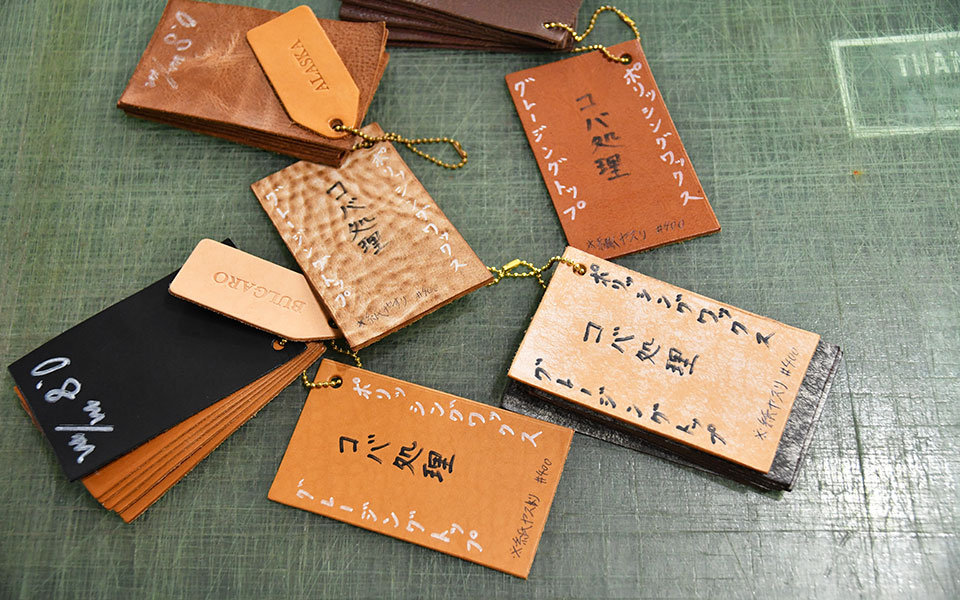 0.8 m/m
ALASKA
ポリッシングワックス
コバ処理
グレージングトップ
※紙ヤスリ #400
ポリッシングワックス
コバ処理
グレージングトップ
※紙ヤスリ #400
BULGARO
0.8 m/m
ポリッシングワックス
コバ処理
グレージングトップ
※紙ヤスリ #400
ポリッシングワックス
コバ処理
グレージングトップ
※紙ヤスリ #400